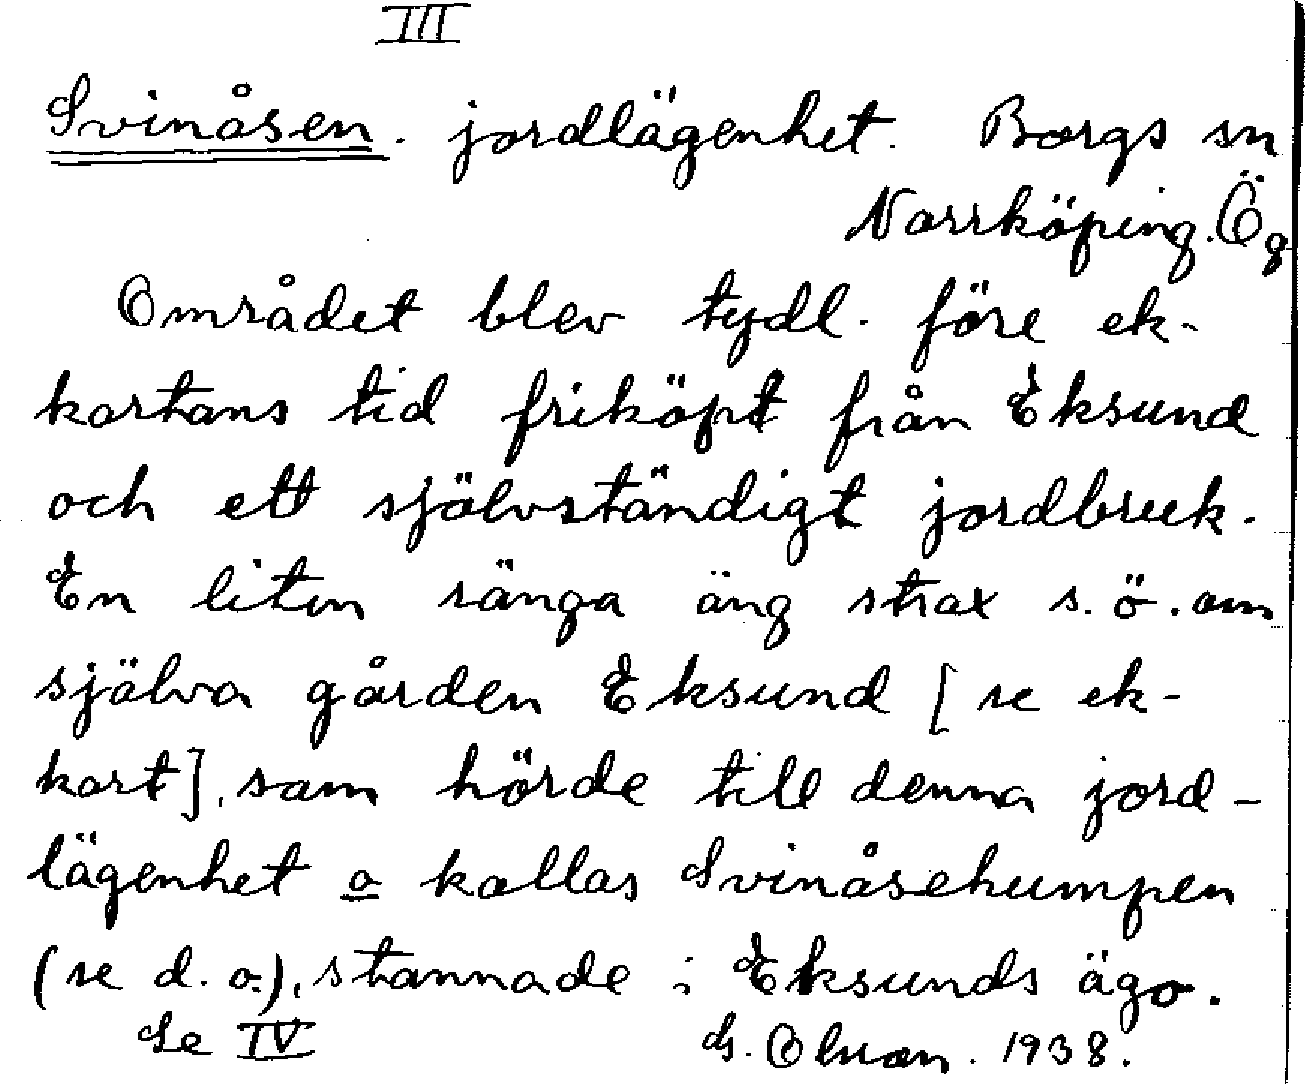 III
Svinåsen. jordlägenhet. Borgs sn
Norrköping. Ög
Området blev tydl. före ek-
kartans tid friköpt från Eksund
och ett självständigt jordbruk.
En liten sänga äng strax s.ö. om
själva gården Eksund [se ek-
kart], som hörde till denna jord-
lägenhet o kallas Svinåsehumpen
(se d. o.), stannade i Eksunds ägo.
Se IV
G. Olson. 1938.